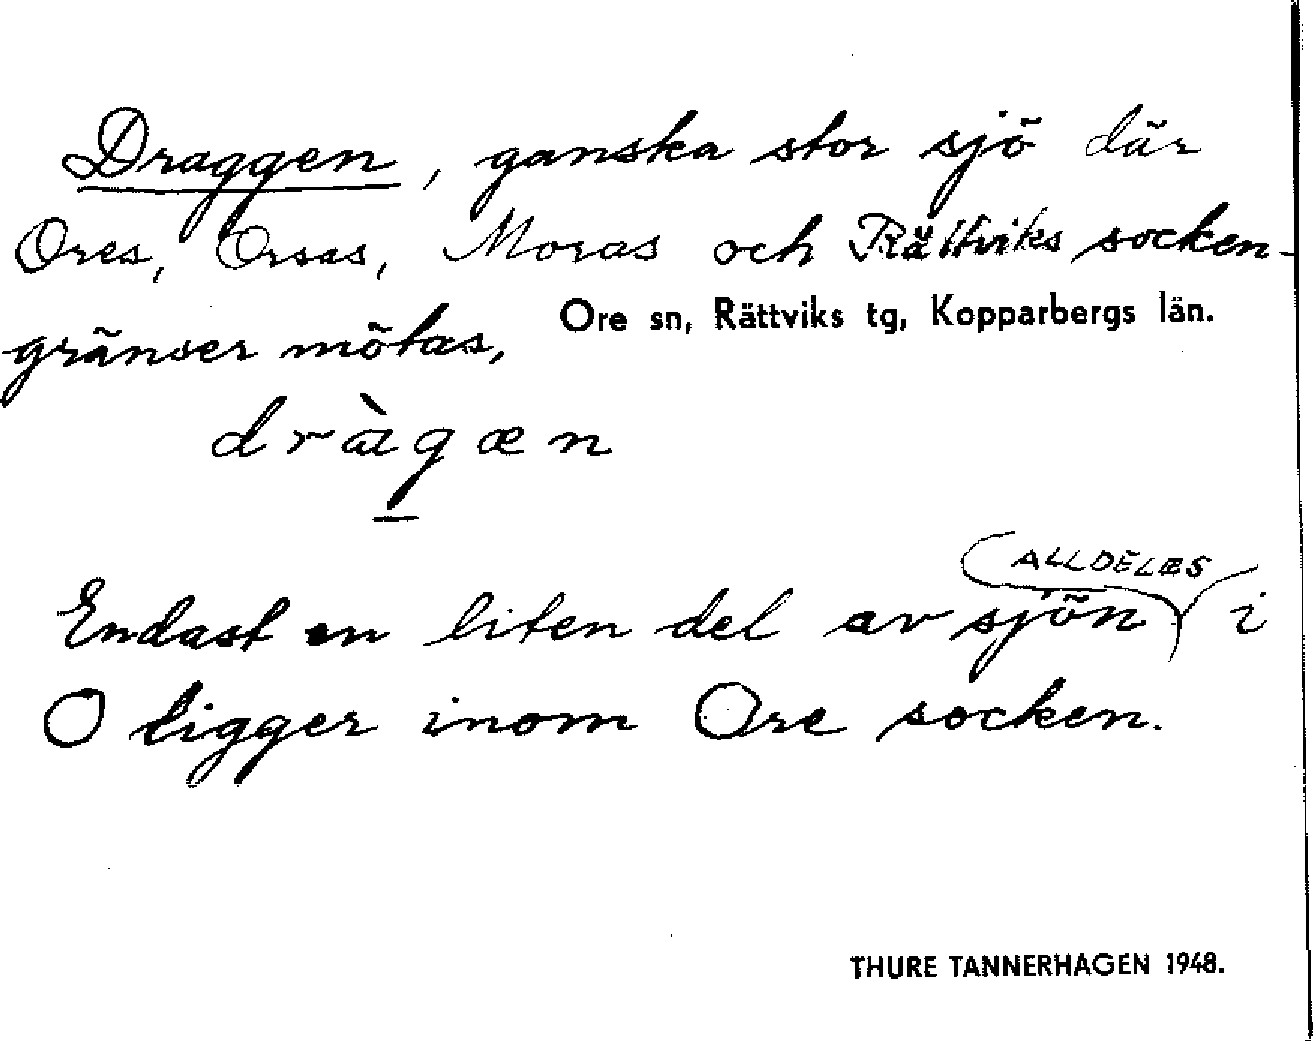 Draggen, ganska stor sjö där
Ores, Orsas, Moras och Rättviks socken-
gränser mötas,
Ore sn, Rättviks tg, Kopparbergs län.
dràgæn
ALLDELES
Endast en liten del av sjön i
O ligger inom Ore socken.
THURE TANNERHAGEN 1948.